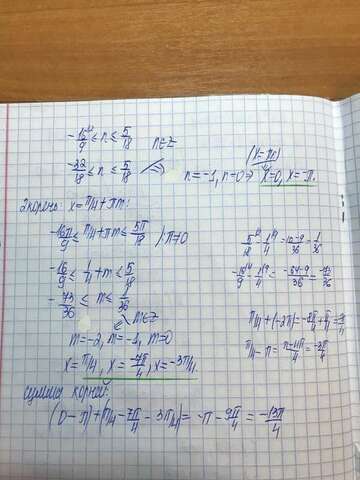 -16/9 ≤ n ≤ 5/18 n∈Z
-32/18 ≤ n ≤ 5/18 ⇔ n=-1, n=0 ⇒ x=0, x=-π.
(x=πn)
2 корень: x=π/4+πm:
-16π/9 ≤ π/4+πm ≤ 5π/18 |:π≠0
-16/9 ≤ 1/4+m ≤ 5/18
-73/36 ≤ m ≤ 1/36
m∈Z
m=-2, m=-1, m=0
x=π/4, x=-7π/4, x=-3π/4.
5/18-1/4=10-9/36=1/36
-16/9-1/4=-64-9/36=-73/36
π/4+(-2π)=-8π/4+π/4=-7
π/4-π=π-4π/4=-3π/4
сумма корней:
(0-π)+(π/4-7π/4-3π/4)=-π-9π/4=-13π/4